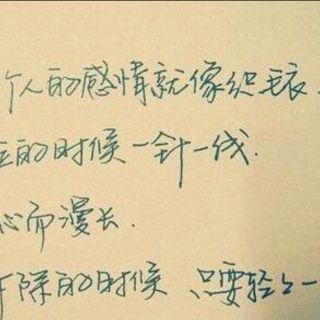 个人的感情就像织毛衣
的时候一针一线.
心而漫长.
除的时候 只要轻轻一